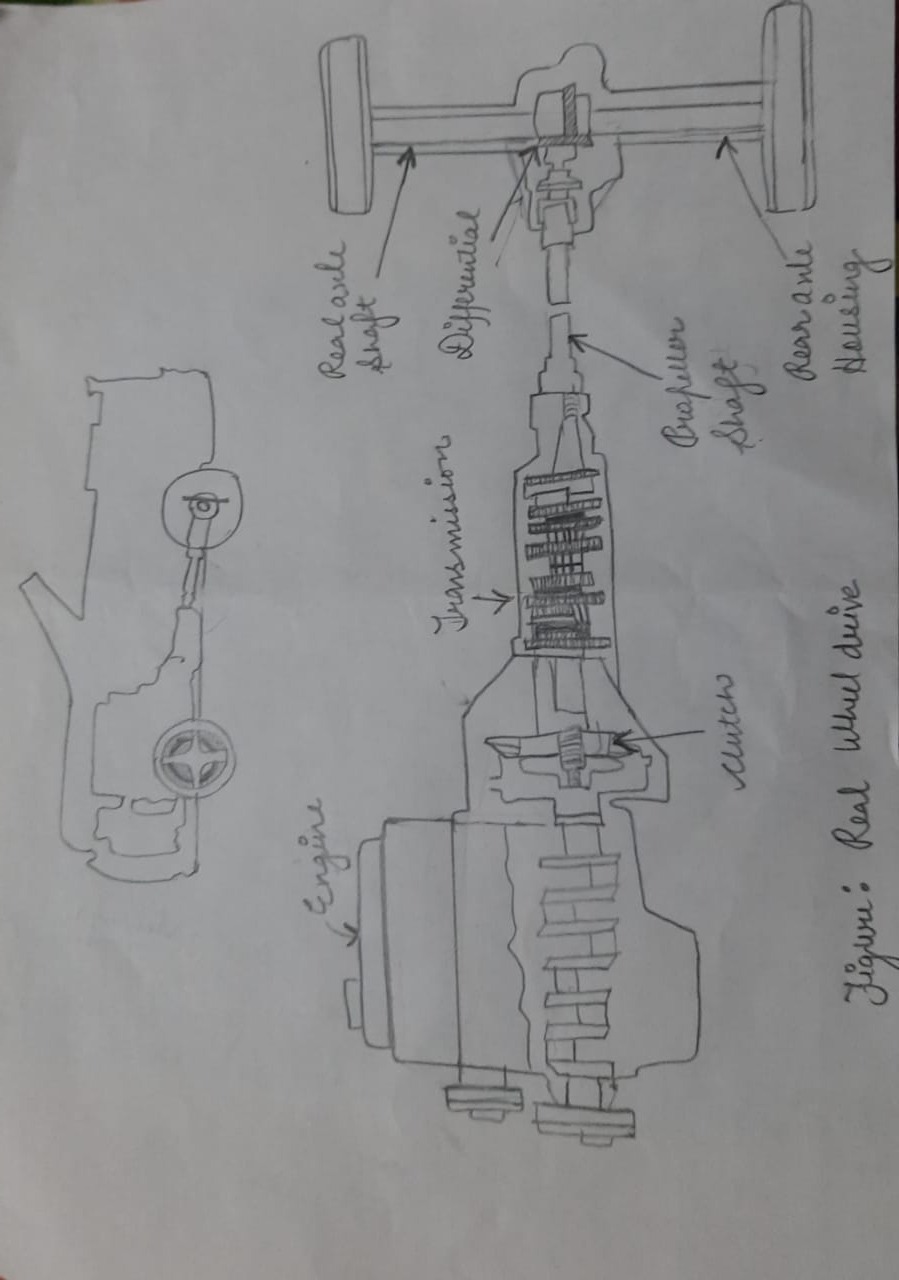 Engine
Real axle
Shaft
Transmission
Differential
Clutch
Propellor
Shaft
Rear axle
Housing
Figure: Real Wheel drive